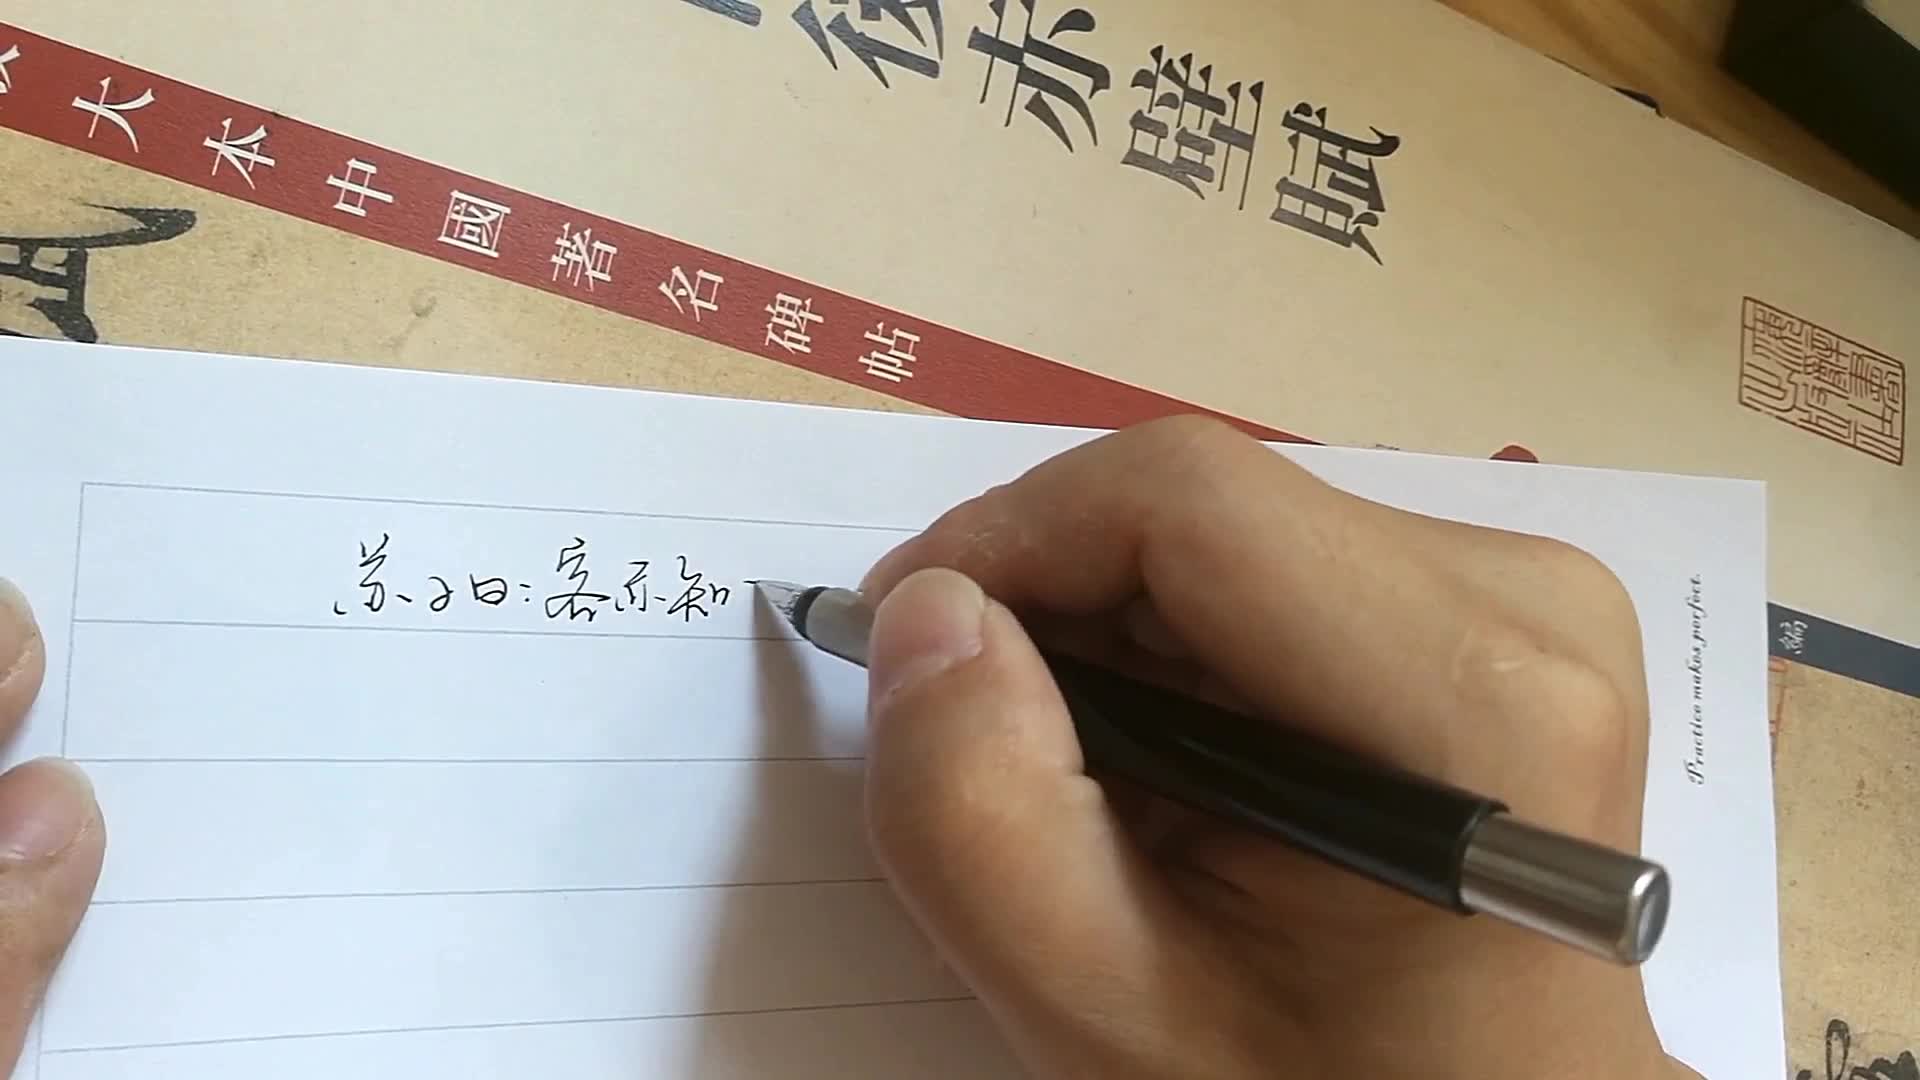 後赤壁賦
大本中國著名碑帖
苏子曰:客亦知
Practice makes perfect.
編